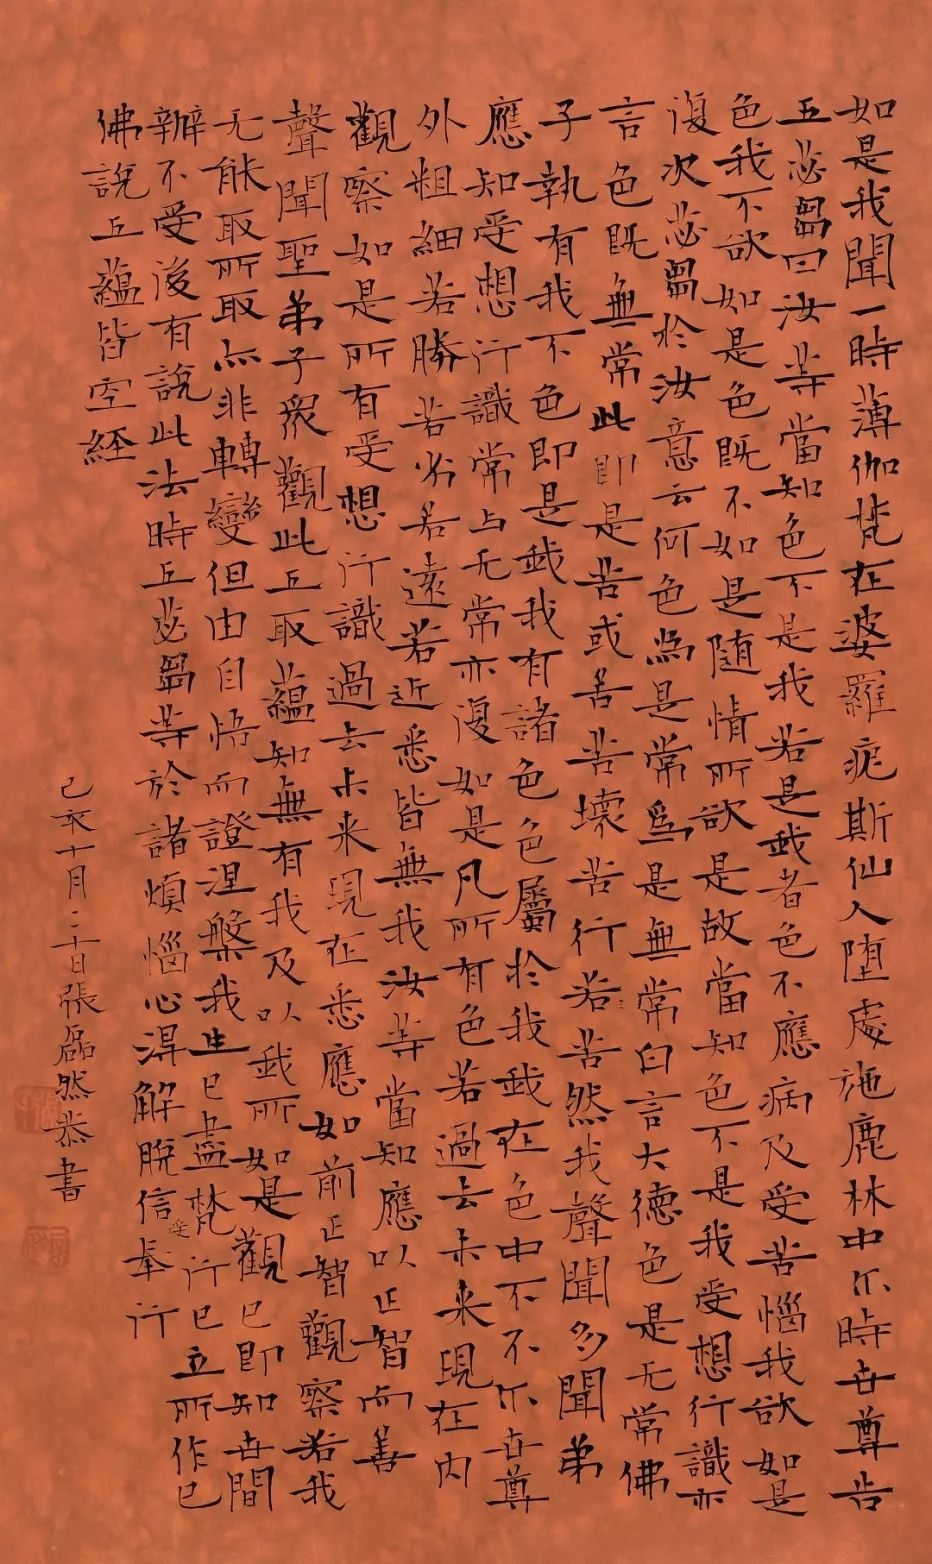 如是我聞一時薄伽梵在婆羅痆斯仙人堕處施鹿林中尒時世尊告
五苾芻曰汝等當知色不是我若是我者色不應病及受苦惱我欲如是
色我不欲如是色既不如是随情所欲是故當知色不是我受想行識亦
復次苾芻於汝意云何色為是常為是無常白言大德色是无常佛
言色既無常此即是苦或苦苦壞苦行若苦然我聲聞多聞弟
子執有我不色即是我我有諸色色屬於我我在色中不不尒世尊
應知受想行識常与无常亦復如是凡所有色若過去未来現在内
外粗細若勝若劣若遠若近悉皆無我汝等當知應以正智而善
觀察如是所有受想行識過去未来現在悉應如前正智觀察若我
聲聞聖弟子衆觀此五取蘊知無有我及以我所如是觀已即知世間
无能取所取亦非轉變但由自悟而證涅槃我生已盡梵行已立所作已
辦不受後有說此法時五苾芻等於諸煩惱心得解脫信受奉行
佛說五蘊皆空経
己亥十月二十日張磊然恭書